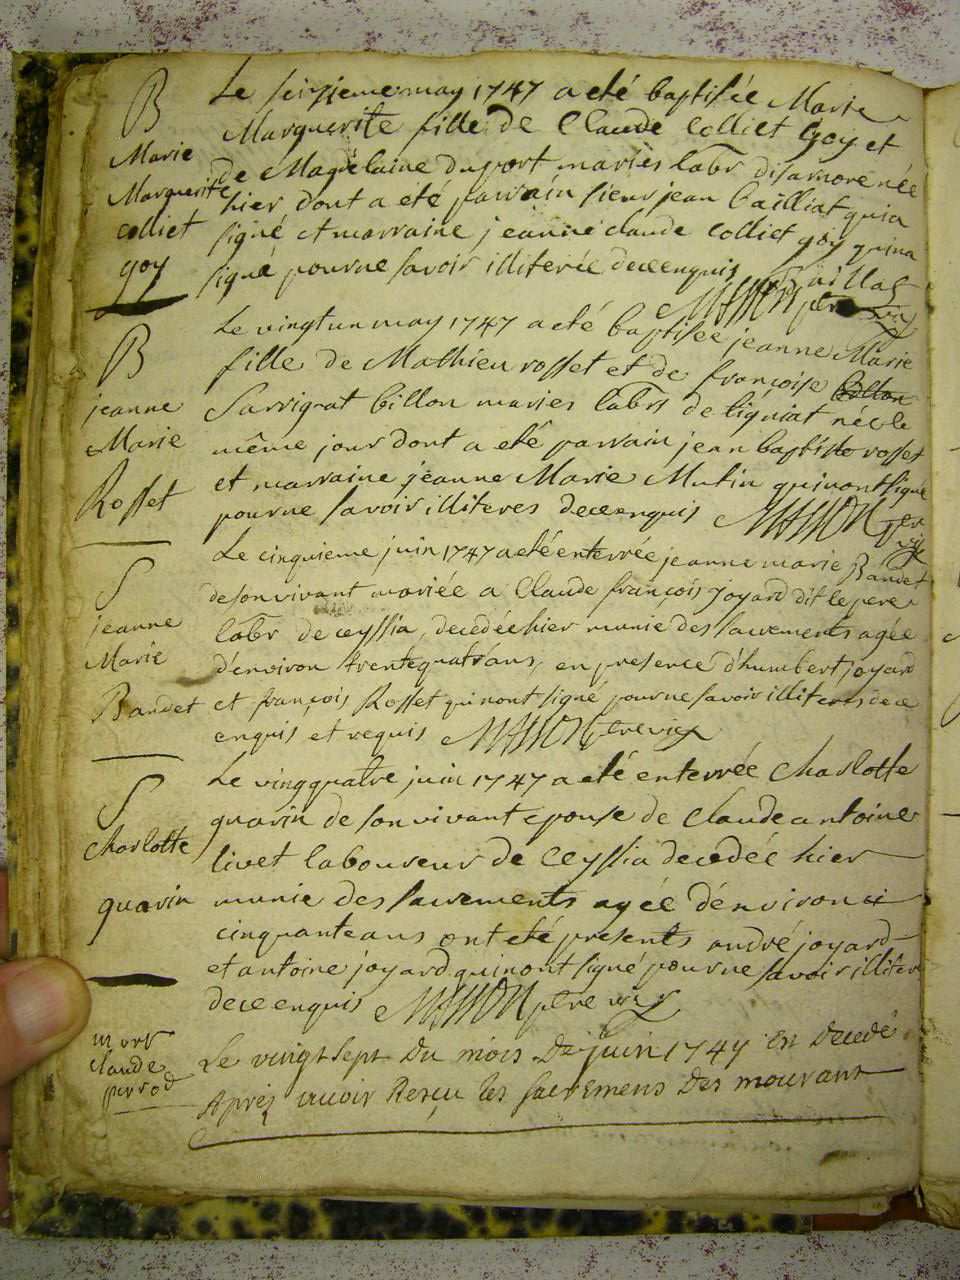 B
Marie
Marguerite
colliet
goy
Le seizieme may 1747 a eté baptisée Marie
Marguerite fille de Claude Colliet goy et
de Magdelaine duport mariés labr disarnore née
hier dont a été parrain sieur jean Bailliat quia
signé et marraine jeanne claude Colliet goy quina
signé pour ne savoir illiterée de ce enquis Baillat
B
jeanne
Marie
Rosset
Le vingt un may 1747 a eté baptisée jeanne Marie
fille de Mathieu rosset et de françoise billon
Sarrignat billon mariés labrs de ligniat née le
même jour dont a eté parrain jean baptiste rosset
et marraine jeanne Marie Mutin quinont signé
pour ne savoir illiteres de ce enquis MASSON
S
jeanne
Marie
Bandet
Le cinquieme juin 1747 a eté enterrée jeanne marie Bandet
de son vivant mariée a Claude françois joyard dit le pere
labr de ceyssia, decedée hier munie des sacrements agée
d'environ trente quatre ans, en presence d'humbert joyard
et françois Rosset quinont signé pour ne savoir illiteres de ce
enquis et requis MASSON
S
charlotte
quarin
Le vingquatre juin 1747 a eté enterrée charlotte
quarin de son vivant epouse de Claude antoine
livet laboureur de Ceyssia decedée hier
munie des sacrements agée d'environ
cinquante ans ont eté presents andré joyard
et antoine joyard quinont signé pour ne savoir illiter
de ce enquis MASSON
mort
claude
perrod
Le vingt sept du mois de juin 1747 est decedé
Aprés avoir Resçu les sacremens des mourant